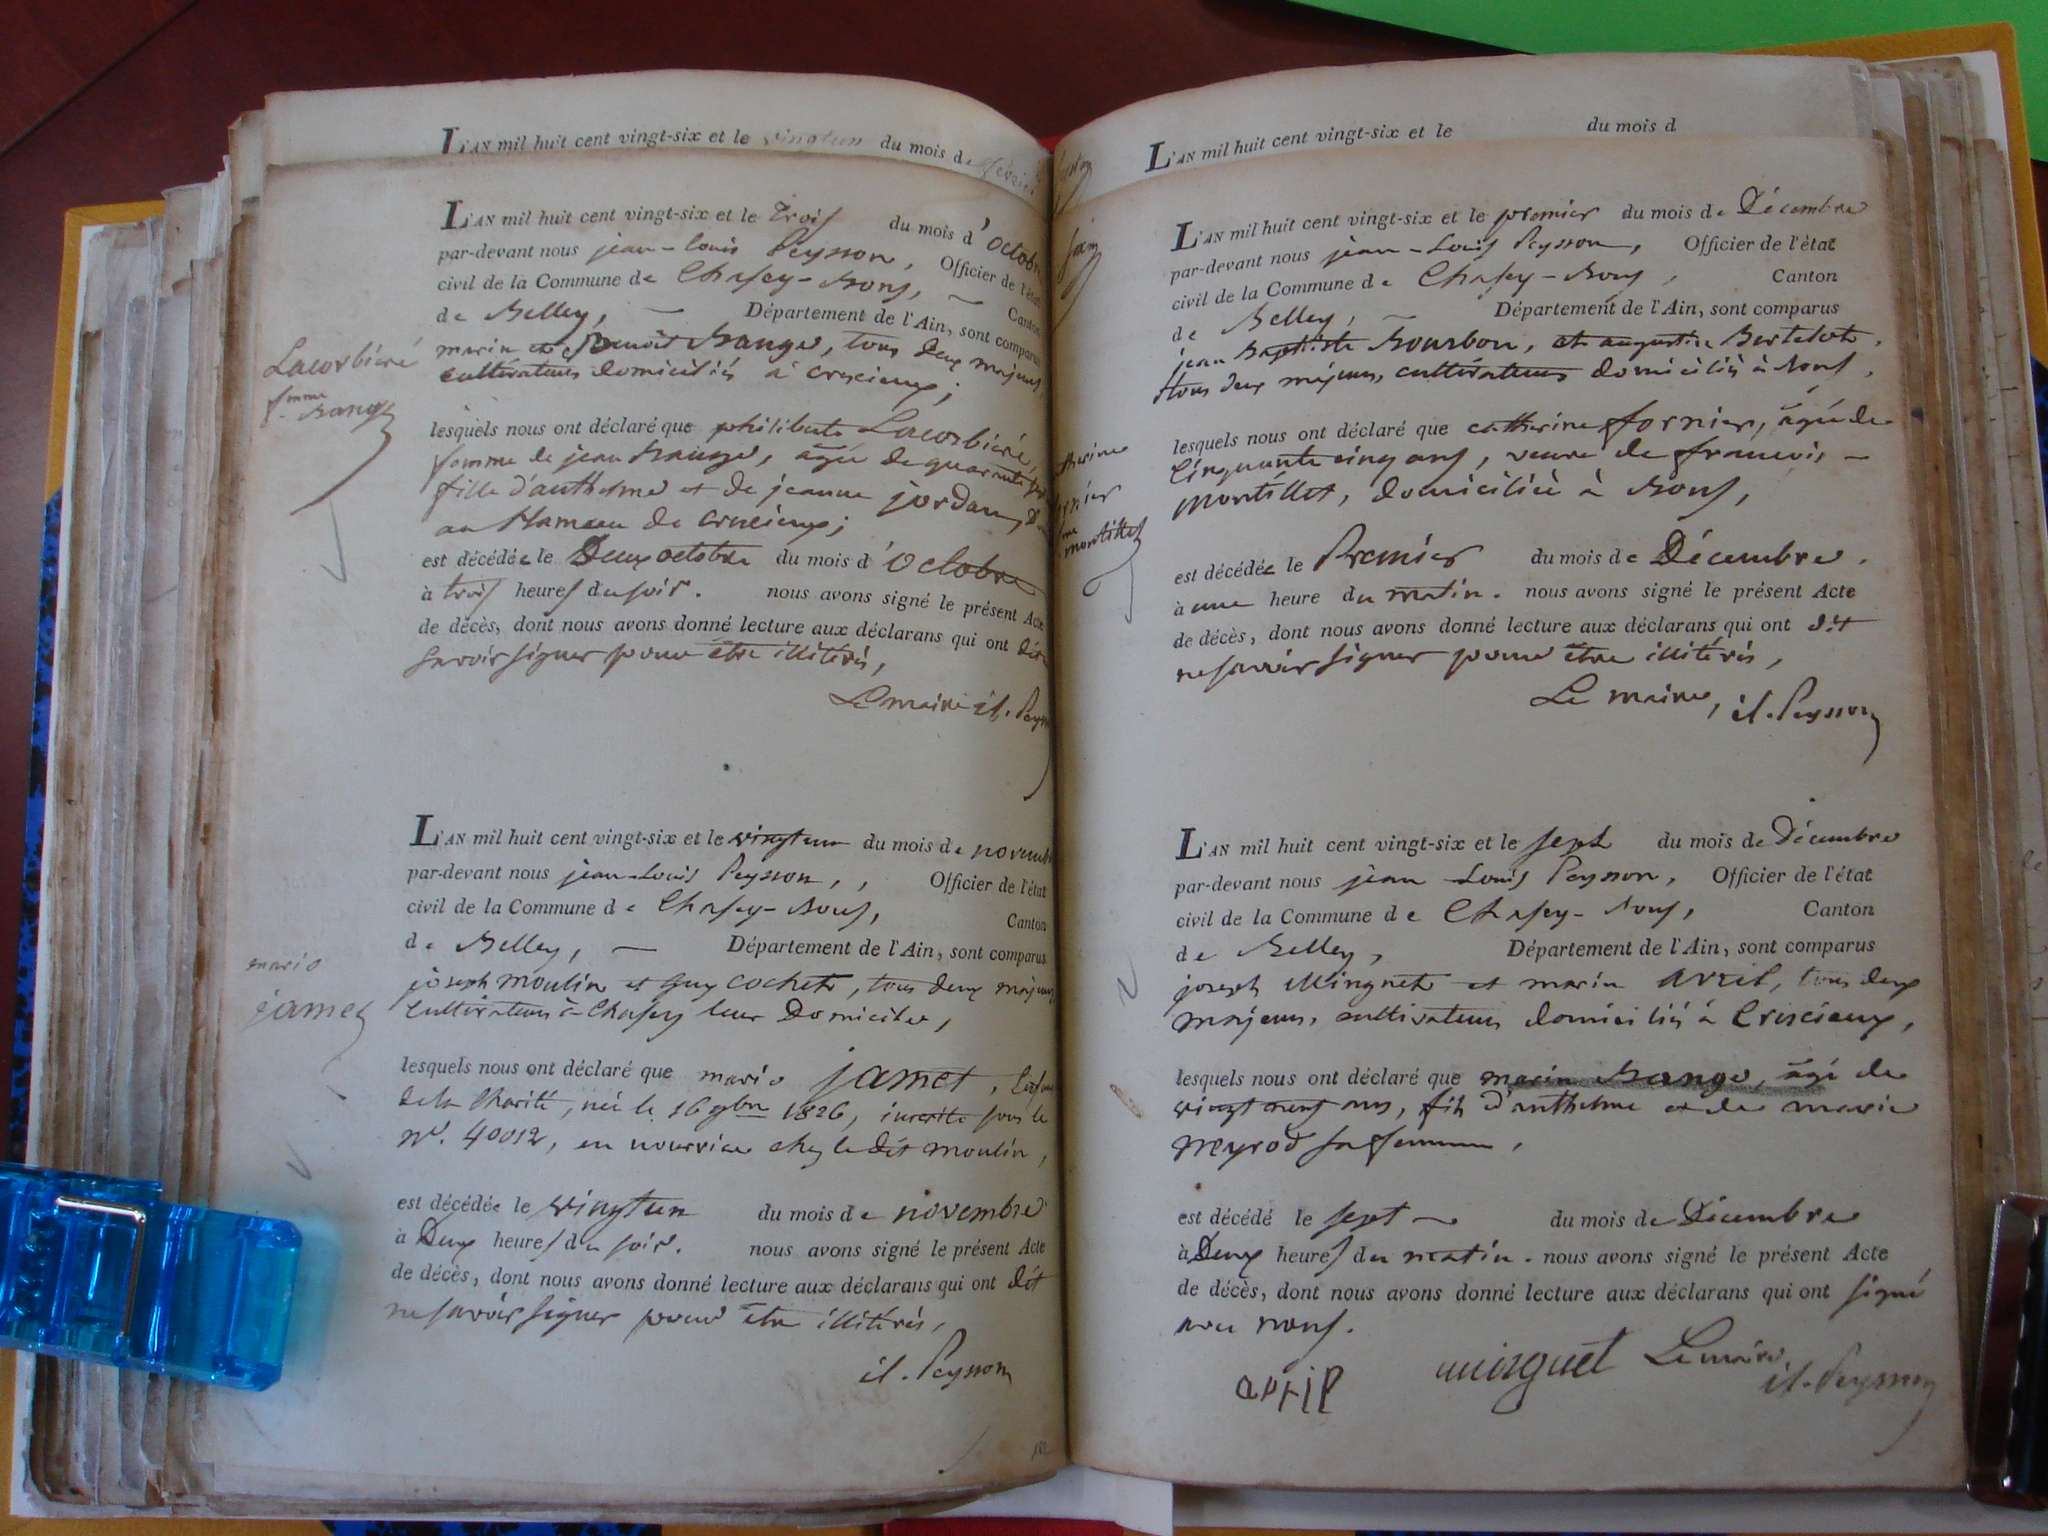 L'AN mil huit cent vingt-six et le vingtun du mois de février
L'AN mil huit cent vingt-six et le trois du mois d'octobre
par-devant nous jean-Louis Peysson, Officier de l'état
civil de la Commune de Chasey-Bons, Canton
de Belley, Département de l'Ain, sont comparus
marin et Benoit Bange, tous deux majeurs,
cultivateurs domiciliés à crescieux;
Lacorbiere
femme
Bange
lesquels nous ont déclaré que philiberte Lacorbiere,
femme de jean Bange, agée de quarante
fille d'anthelme et de jeanne jordan,
au Hameau de crescieux;
est décédée le Deux octobre du mois d'Octobre
à trois heures du soir. nous avons signé le présent Acte
de décès, dont nous avons donné lecture aux déclarans qui ont dit
savoir signer pour être illiterés,
Le maire jl. Peysson
L'AN mil huit cent vingt-six et le vingtun du mois de novembre
par-devant nous jean-Louis Peysson, , Officier de l'état
civil de la Commune de Chasey-Bons, Canton
de Belley, Département de l'Ain, sont comparus
joseph moulin et guy cochet, tous deux majeurs
cultivateurs à Chasey leur Domicile,
marie
jamet
lesquels nous ont déclaré que marie jamet,
de la Charité, née le 16 9bre 1826, inscrite sous le
N°. 40012, en nourrice chez le dit moulin,
est décédée le vingtun du mois de novembre
à Deux heures du soir. nous avons signé le présent Acte
de décès, dont nous avons donné lecture aux déclarans qui ont dit
ne savoir signer pour être illiterés,
jl. Peysson
L'AN mil huit cent vingt-six et le du mois d
L'AN mil huit cent vingt-six et le premier du mois de Décembre
par-devant nous jean-Louis Peysson, Officier de l'état
civil de la Commune de Chasey-Bons, Canton
de Belley, Département de l'Ain, sont comparus
jean Baptiste Bourbon, et augustin Bertelot,
tous deux majeurs, cultivateurs domiciliés à Bons,
lesquels nous ont déclaré que catherine fornier, agée de
Cinquante cinq ans, veuve de francois
montillet, domiciliée à Bons,
montillet
est décédée le Premier du mois de Décembre.
à une heure du matin. nous avons signé le présent Acte
de décès, dont nous avons donné lecture aux déclarans qui ont dit
ne savoir signer pour être illiterés,
Le maire, jl. Peysson
L'AN mil huit cent vingt-six et le sept du mois de Décembre
par-devant nous jean Louis Peysson, Officier de l'état
civil de la Commune de Chasey-Bons, Canton
de Belley, Département de l'Ain, sont comparus
joseph Minguet et marin avril, tous deux
majeurs, cultivateurs domiciliés à Crescieux,
lesquels nous ont déclaré que marin Bange, agé de
vingt neuf ans, fils d'anthelme et de marie
neyrod sa femme,
est décédé le sept du mois de Décembre
à Deux heures du matin. nous avons signé le présent Acte
de décès, dont nous avons donné lecture aux déclarans qui ont signé
avec nous.
avril minguet Le maire, jl. Peysson